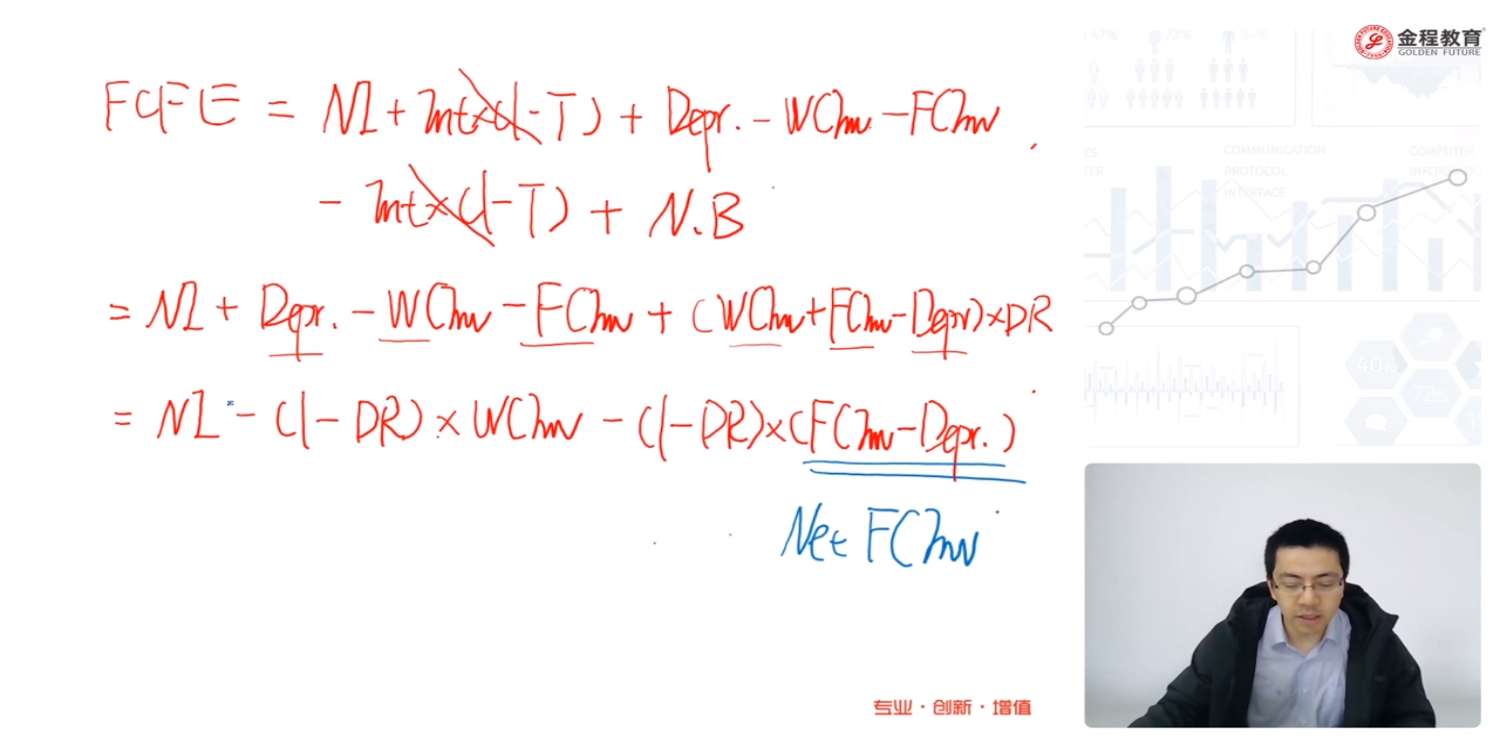 金程教育
GOLDEN FUTURE
FCFE = NI + Int×(1-T) + Depr. - WCInv - FCInv
- Int×(1-T) + N.B
= NI + Depr. - WCInv - FCInv + (WCInv+FCInv-Depr)×DR
= NI - (1-DR)×WCInv - (1-DR)×(FCInv-Depr.)
Net FCInv
COMMUNICATION
PROTOCOL
INTERFACE
40%
72%
专业·创新·增值